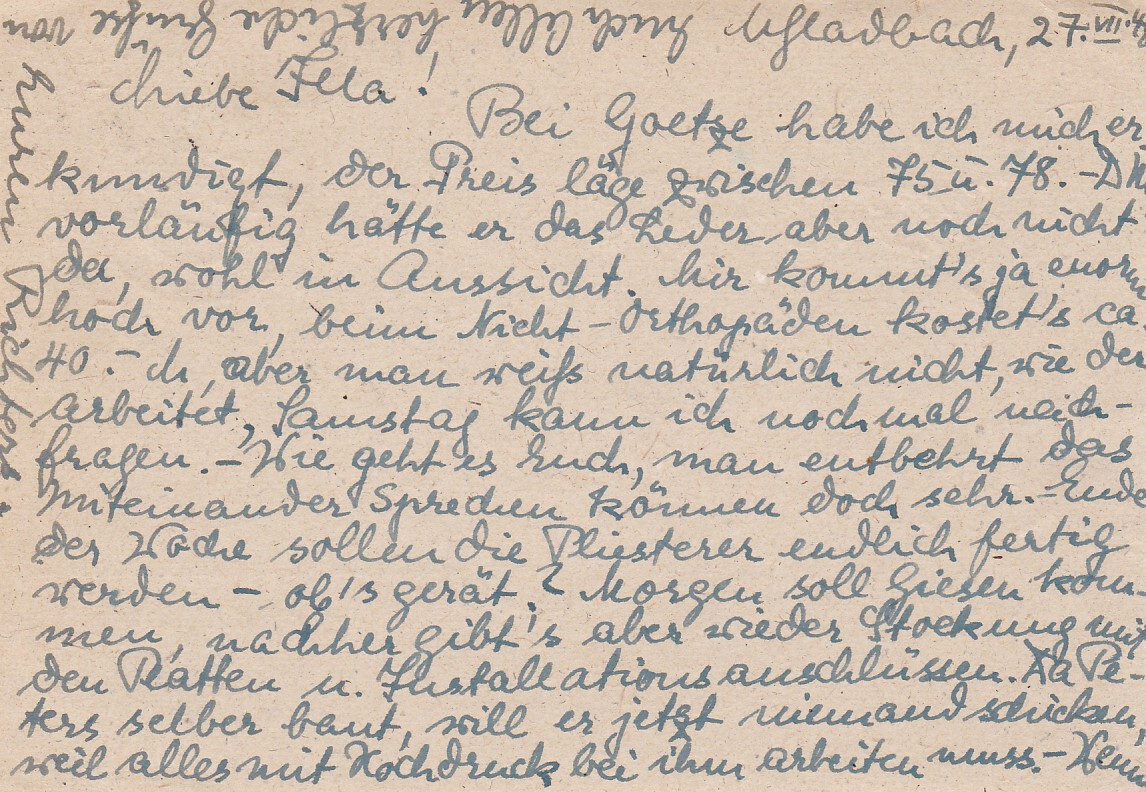 MGladbach, 27.VII.4
Liebe Illa!
Bei Goetze habe ich mich er
kundigt, der Preis läge zwischen 75 u. 78.- DM
vorläufig hätte er das Leder aber noch nicht
da, wohl in Aussicht. Mir kommt's ja enorm
hoch vor, beim Nicht-Orthopäden kostet's ca
40.- M, aber man weiß natürlich nicht, wie der
arbeitet, Samstag kann ich noch mal nach-
fragen. - Wie geht es Euch, man entbehrt das
Miteinander Sprechen können doch sehr. - Ende
der Woche sollen die Pliesterer endlich fertig
werden - ob's gerät? Morgen soll Giesen kom-
men, nachher gibt's aber wieder Stockung mit
den Platten u. Installationsanschlüssen. Da Pe-
ters selber baut, will er jetzt niemand schicken,
weil alles mit Hochdruck bei ihm arbeiten muss. - Wenn
Euch Allen herzliche Grüße von
Euren